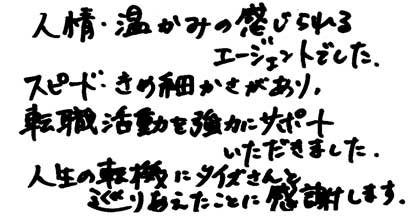 人情・温かみの感じられる
エージェントでした.
スピード・きめ細かさがあり,
転職活動を強力にサポート
いただきました.
人生の転機にタイズさんと
巡りあえたことに感謝します.